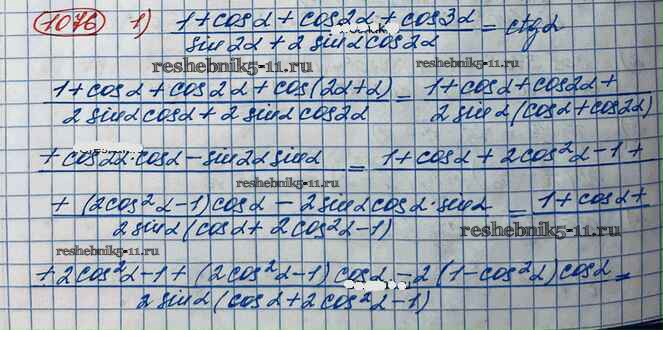 1076 1) (1+cosα+cos2α+cos3α)/(sin2α+2sinαcos2α) = ctgα
reshebnik5-11.ru
(1+cosα+cos2α+cos(2α+α))/(2sinαcosα+2sinαcos2α) = (1+cosα+cos2α+)/(2sinα(cosα+cos2α)
+cos2α·cosα-sin2αsinα = 1+cosα+2cos²α-1+
reshebnik5-11.ru
(+(2cos²α-1)cosα-2sinαcosα·sinα)/(2sinα(cosα+2cos²α-1)) = 1+cosα+
reshebnik5-11.ru
reshebnik5-11.ru
(+2cos²α-1+(2cos²α-1)cosα-2(1-cos²α)cosα)/(2sinα(cosα+2cos²α-1)) =